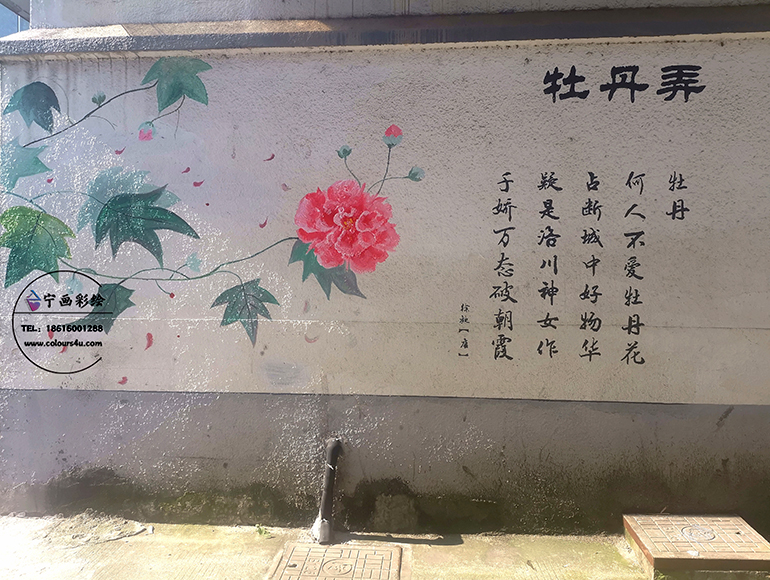 牡丹弄
牡丹
何人不爱牡丹花
占断城中好物华
疑是洛川神女作
千娇万态破朝霞
徐凝【唐】
宁画彩绘
TEL：18616001288
www.colours4u.com